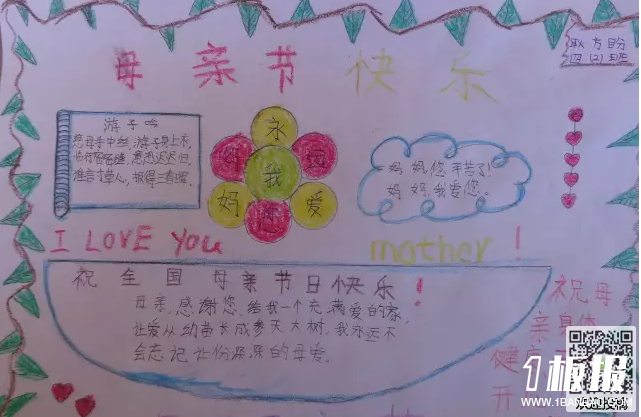 母亲节快乐
四(2)班
游子吟
慈母手中线,游子身上衣,
临行密密缝,意恐迟迟归,
谁言寸草心,报得三春晖。
永
远
我
妈
爱
妈妈,您辛苦了!
妈妈,我爱您。
I LOVE You mother !
祝全国母亲节日快乐!
母亲,感谢您,给我一个充满爱的家,
让爱从幼苗长成参天大树,我永远不
会忘记让份深深的母爱。
祝母
亲身体
健康
开
1板报
WWW.1BANBAO.COM
欢迎投稿